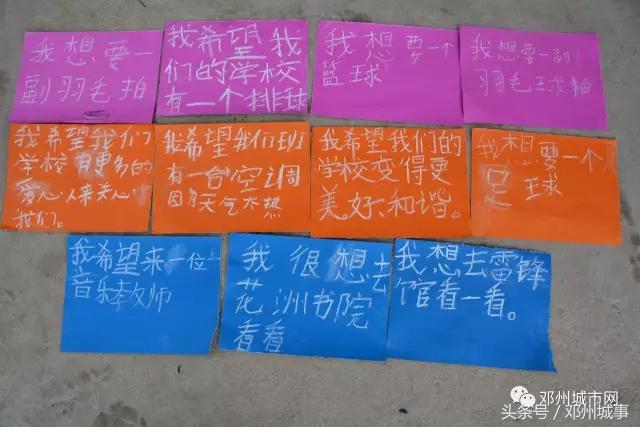 我想要一
副羽毛拍
我希望我
们的学校
有一个排球
我想要一个
篮球
我想要一副
羽毛球拍
我希望我们
学校有更多的
爱心人来关心
我们。
我希望我们班
有一台空调
因为天气太热
我希望我们的
学校变得更
美好、和谐。
我想要一个
足球
我希望来一位
音乐教师
我很想去
花洲书院
看看
我想去雷锋
馆看一看。
邓州城市网
头条号/邓州城事